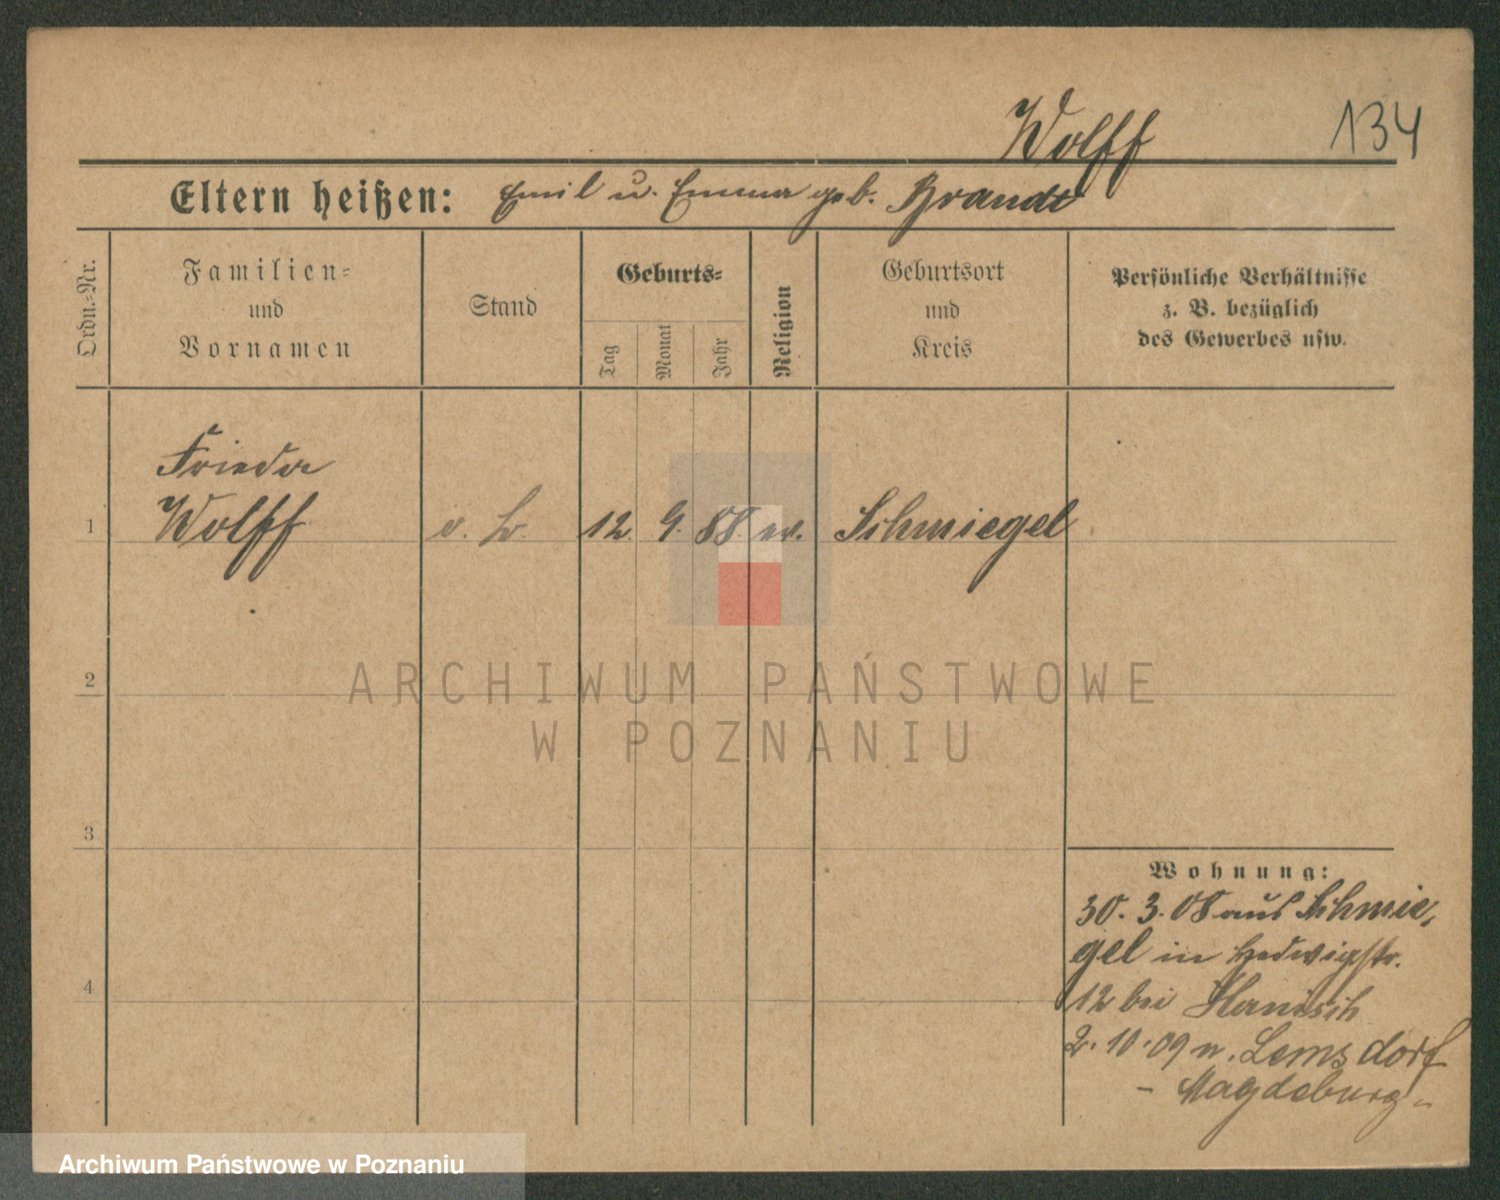 Wolff 134
Eltern heißen: Emil u. Emma geb. Brandt
Ordn.-Nr.
Familien-
und
Vornamen
Stand
Geburts-
Tag
Monat
Jahr
Religion
Geburtsort
und
Kreis
Persönliche Verhältnisse
z. B. bezüglich
des Gewerbes usw.
Frieda
1 Wolff o. 12. 9. 88. ev. Schmiegel
2
3
4
Wohnung:
30. 3. 08 aus Schmie-
gel in Hedwigstr.
12 bei Hanisch
2. 10. 09 n. Lemsdorf
- Magdeburg -
ARCHIWUM PAŃSTWOWE
W POZNANIU
Archiwum Państwowe w Poznaniu